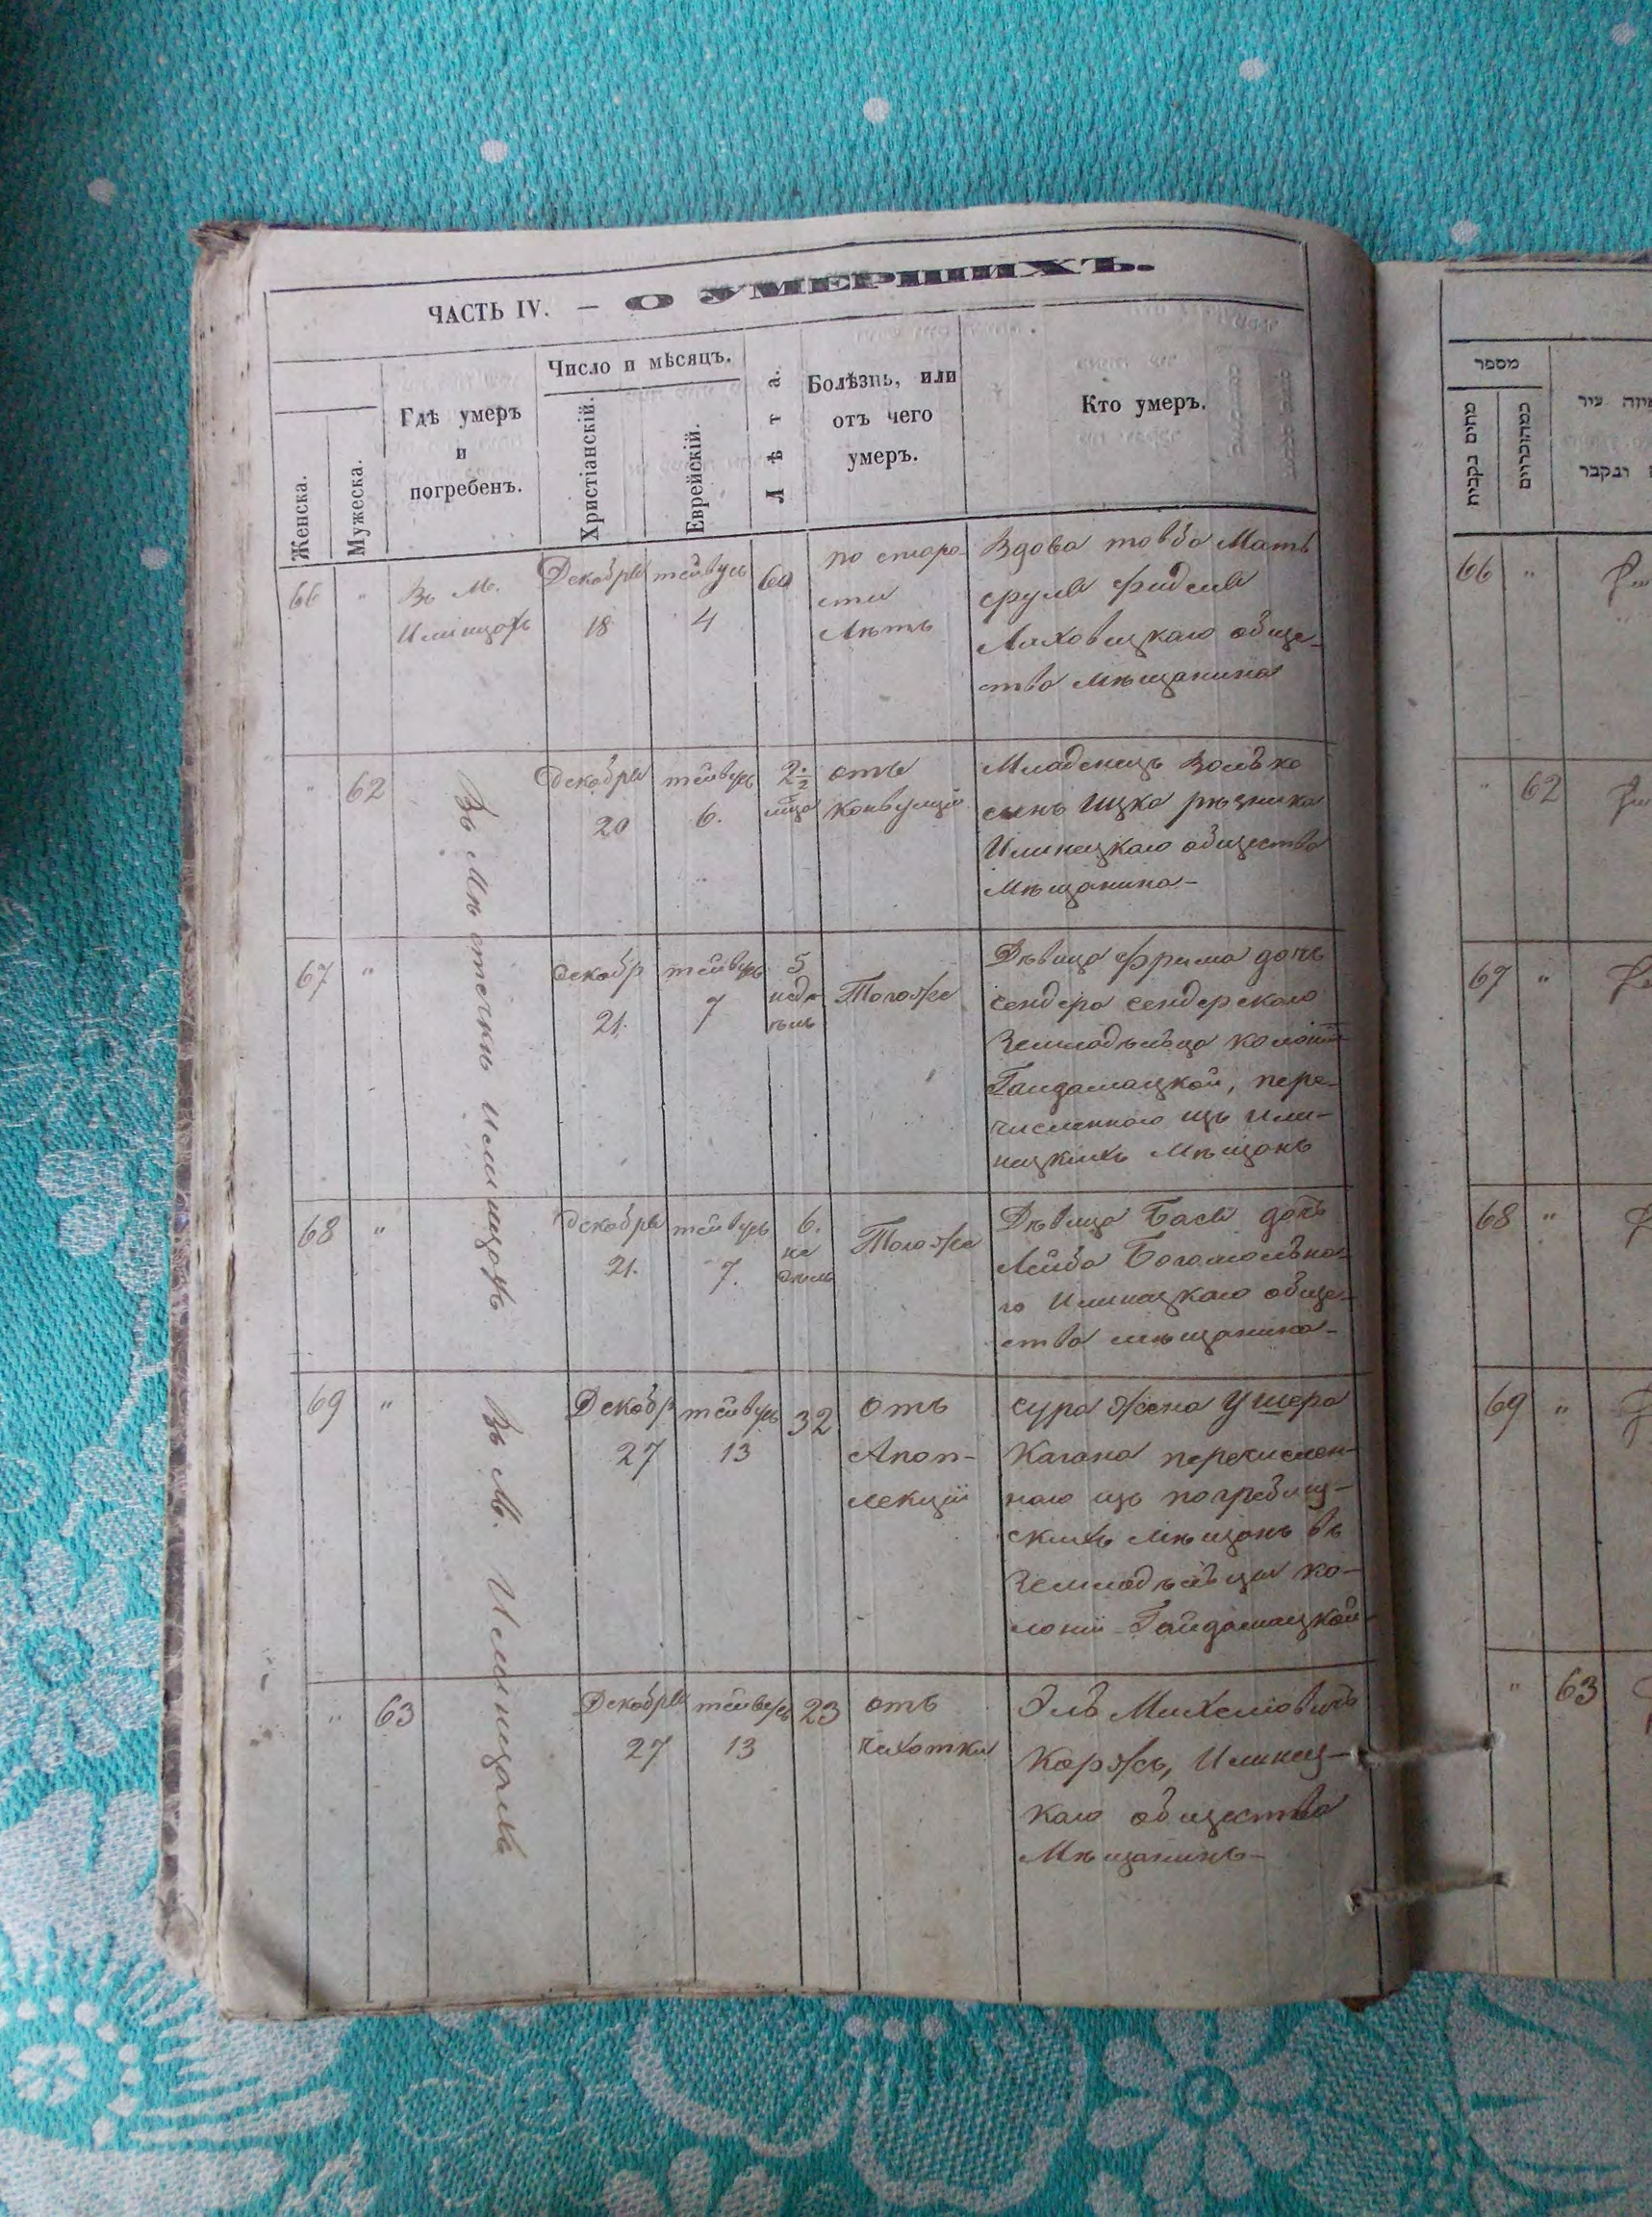 ЧАСТЬ IV. — О УМЕРШИХЪ.
Женска.
Мужеска.
Гдѣ умеръ
и
погребенъ.
Число и мѣсяцъ.
Христіанскій.
Еврейскій.
Лѣта.
Болѣзнь, или
отъ чего
умеръ.
Кто умеръ.
66
"
Въ М.
Илинцахъ
Декабря
18
тейвусъ
4
60
по старо-
сти
Лѣтъ
Вдова товба Мать
сруля фиделя
Ляховицкаго обще-
ства мѣщанина
"
62
Въ Мѣстечкѣ Илинцахъ
декабря
20
тейвусъ
6.
2 1/2
мца
отъ
конвулцій
Младенецъ Волько
сынъ Ицка рѣзника
Илинецкаго общества
Мѣщанина-
67
"
декабр
21.
тейвусъ
7
5
недѣ
ѣль
Тогоже
Дѣвица фрима дочь
сендера сендерскаго
Земледѣльца колоніи
Гайдамацкой, пере-
численного изъ Или-
нецкихъ Мѣщанъ
68
"
декабря
21.
тейвусъ
7.
6.
не
дель
Тогоже
Дѣвица Бася дочь
Лейба Богомольна-
го Илинецкаго обще-
ства мѣщанина-
69
"
Въ М. Илинцахъ
Декабр
27
тейвусъ
13
32
отъ
Апоп-
лекціи
сура жена Ушера
Кагана перечислен-
наго изъ погребищ-
скихъ мѣщанъ въ
Земледѣльцы ко-
лоніи Гайдамацкой-
"
63
Декабря
27
тейвусъ
13
23
отъ
чахотки
Эль Михелiовичъ
Коржъ, Илинец-
каго общества
Мѣщанинъ-
מספר
66
"
"
62
67
"
68
"
69
"
"
63